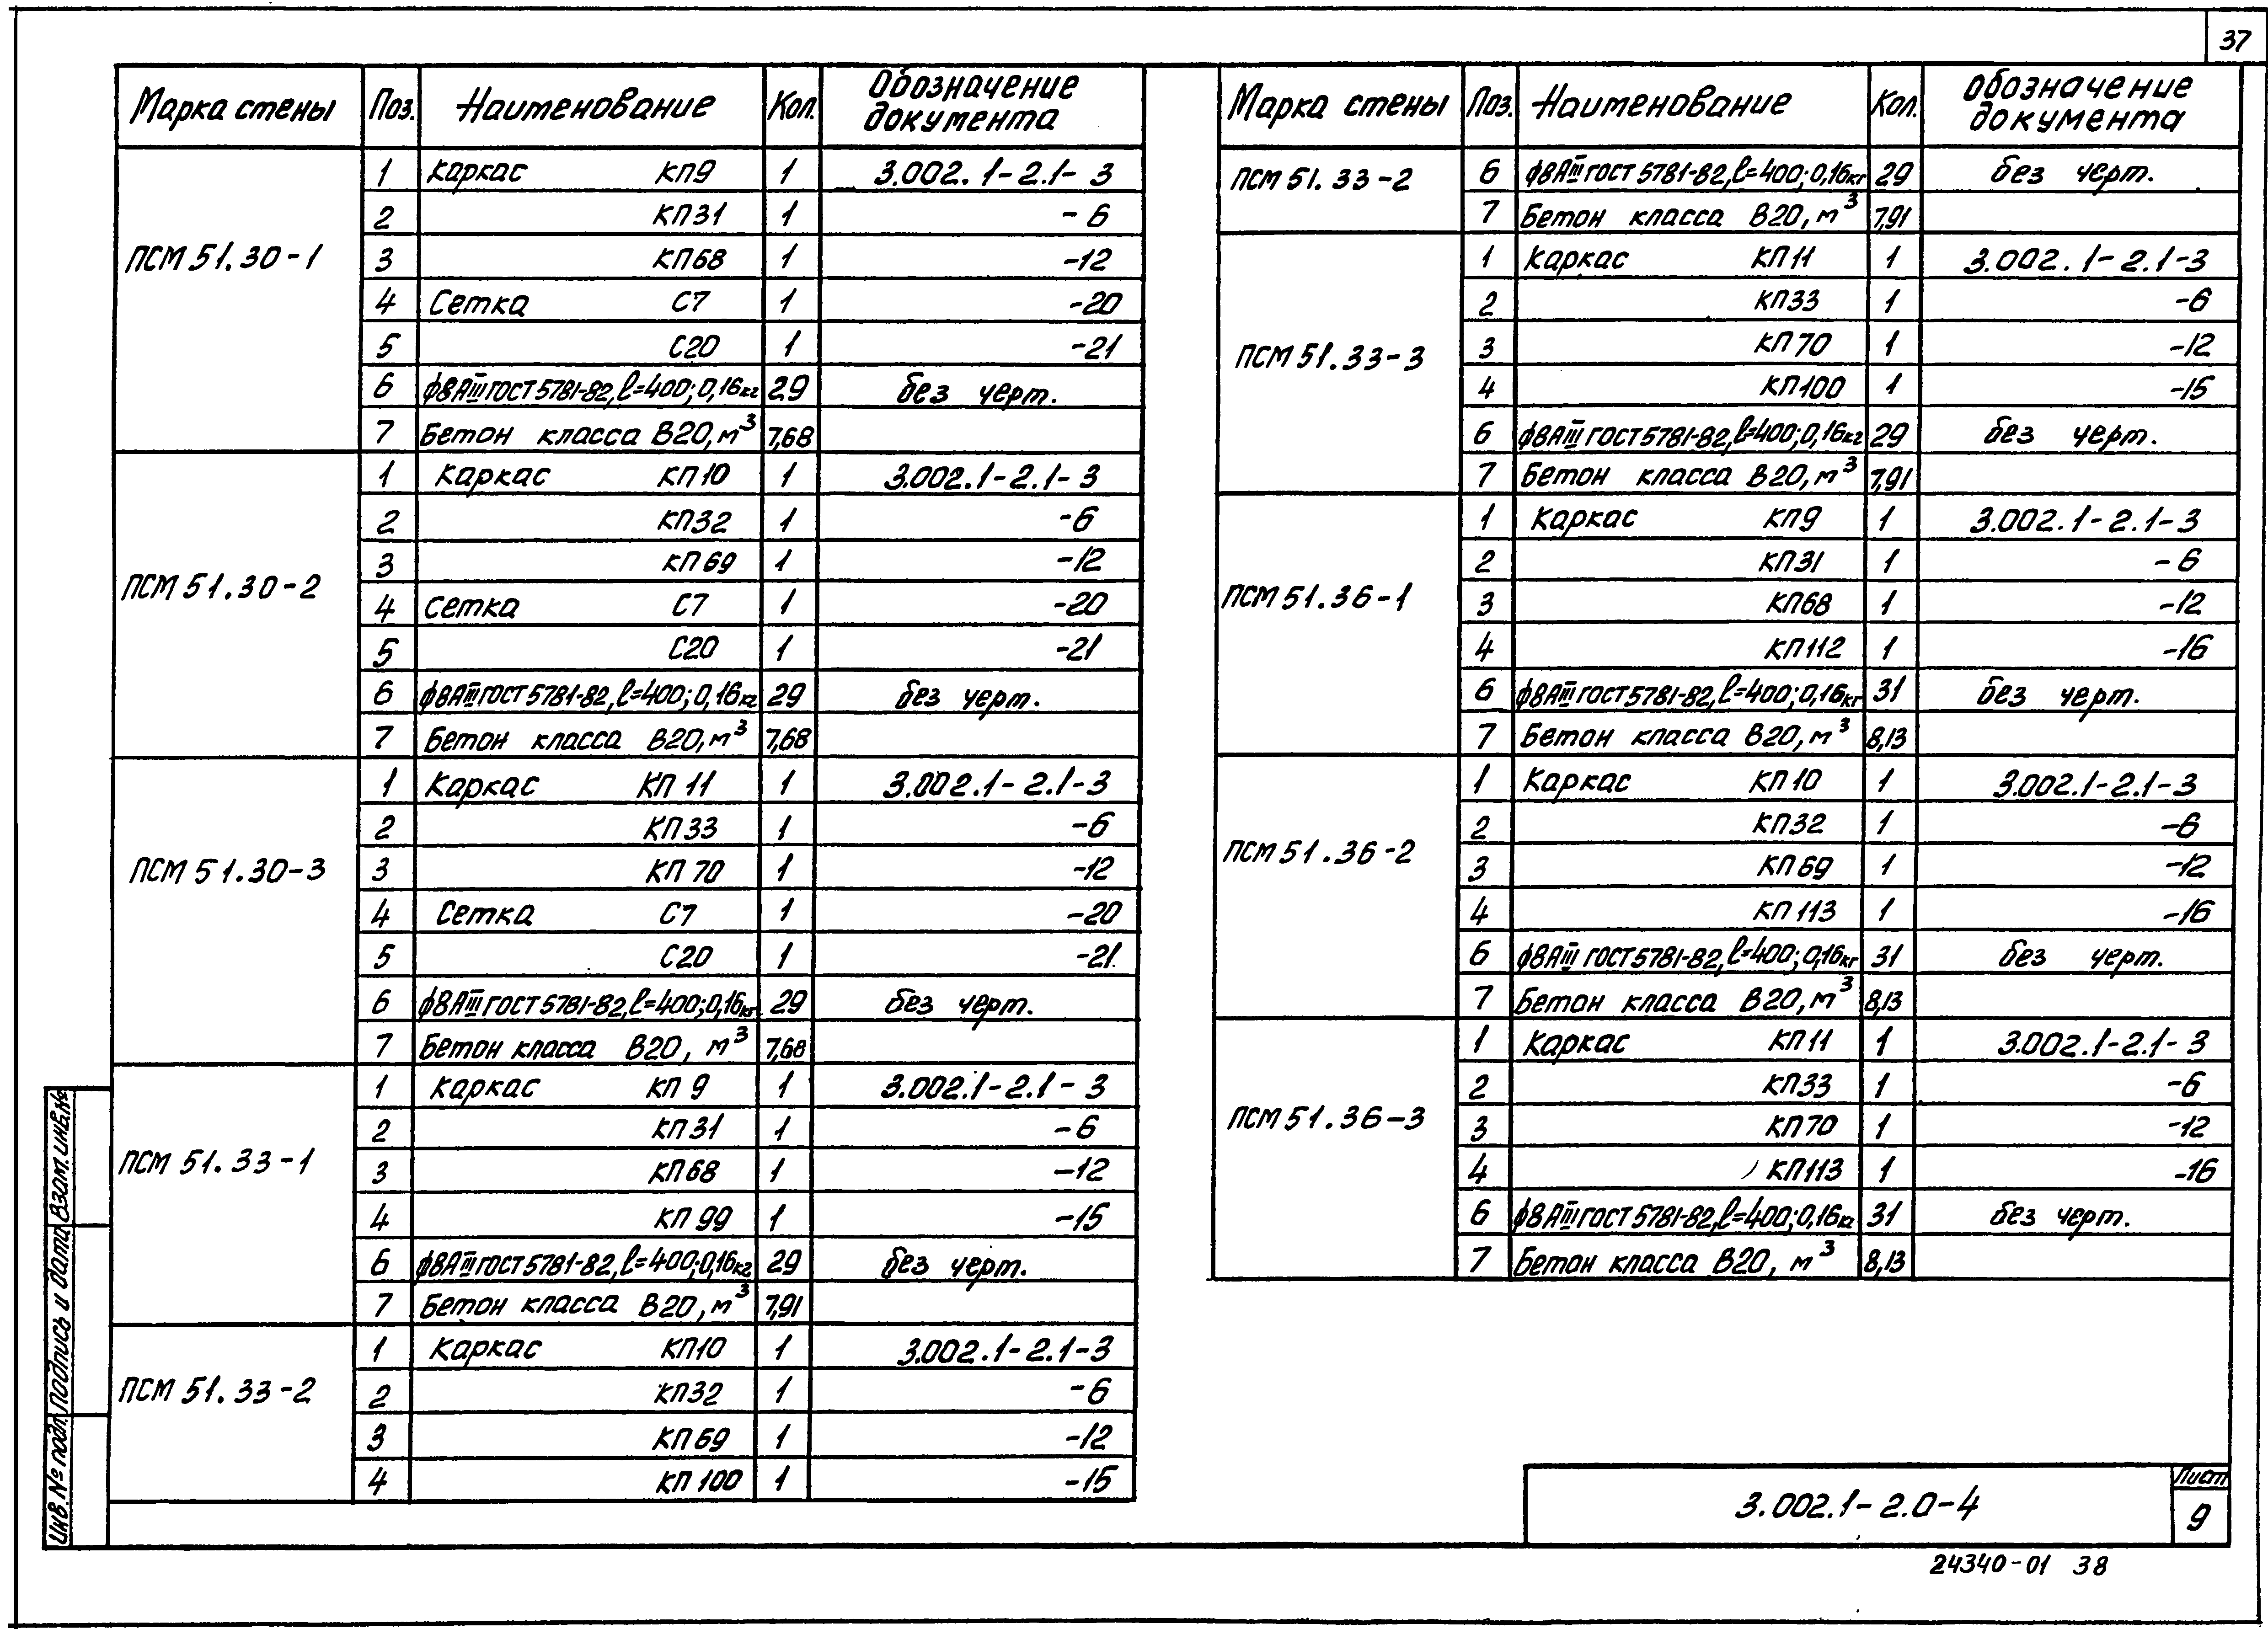 37
Марка стены Поз. Наименование Кол. Обозначение документа
ПСМ 51.30-1
1 Каркас КП9 1 3.002.1-2.1-3
2 КП31 1 -6
3 КП68 1 -12
4 Сетка С7 1 -20
5 С20 1 -21
6 ф8АIII ГОСТ 5781-82, l=400; 0,16кг 29 без черт.
7 Бетон класса В20, м³ 7,68
ПСМ 51.30-2
1 Каркас КП10 1 3.002.1-2.1-3
2 КП32 1 -6
3 КП69 1 -12
4 Сетка С7 1 -20
5 С20 1 -21
6 ф8АIII ГОСТ 5781-82, l=400; 0,16кг 29 без черт.
7 Бетон класса В20, м³ 7,68
ПСМ 51.30-3
1 Каркас КП 11 1 3.002.1-2.1-3
2 КП33 1 -6
3 КП 70 1 -12
4 Сетка С7 1 -20
5 С20 1 -21
6 ф8АIII ГОСТ 5781-82, l=400; 0,16кг 29 без черт.
7 Бетон класса В20, м³ 7,68
ПСМ 51.33-1
1 Каркас КП 9 1 3.002.1-2.1-3
2 КП31 1 -6
3 КП68 1 -12
4 КП 99 1 -15
6 ф8АIII ГОСТ 5781-82, l=400; 0,16кг 29 без черт.
7 Бетон класса В20, м³ 7,91
ПСМ 51.33-2
1 Каркас КП10 1 3.002.1-2.1-3
2 КП32 1 -6
3 КП69 1 -12
4 КП 100 1 -15
Марка стены Поз. Наименование Кол. Обозначение документа
ПСМ 51.33-2
6 ф8АIII ГОСТ 5781-82, l=400; 0,16кг 29 без черт.
7 Бетон класса В20, м³ 7,91
ПСМ 51.33-3
1 Каркас КП11 1 3.002.1-2.1-3
2 КП33 1 -6
3 КП 70 1 -12
4 КП100 1 -15
6 ф8АIII ГОСТ 5781-82, l=400; 0,16кг 29 без черт.
7 Бетон класса В20, м³ 7,91
ПСМ 51.36-1
1 Каркас КП9 1 3.002.1-2.1-3
2 КП31 1 -6
3 КП68 1 -12
4 КП112 1 -16
6 ф8АIII ГОСТ 5781-82, l=400; 0,16кг 31 без черт.
7 Бетон класса В20, м³ 8,13
ПСМ 51.36-2
1 Каркас КП10 1 3.002.1-2.1-3
2 КП32 1 -6
3 КП69 1 -12
4 КП 113 1 -16
6 ф8АIII ГОСТ 5781-82, l=400; 0,16кг 31 без черт.
7 Бетон класса В20, м³ 8,13
ПСМ 51.36-3
1 Каркас КП11 1 3.002.1-2.1-3
2 КП33 1 -6
3 КП70 1 -12
4 КП113 1 -16
6 ф8АIII ГОСТ 5781-82, l=400; 0,16кг 31 без черт.
7 Бетон класса В20, м³ 8,13
Инв. № подл. Подпись и дата Взам. инв. №
3.002.1-2.0-4
Лист
9
24340-01 38